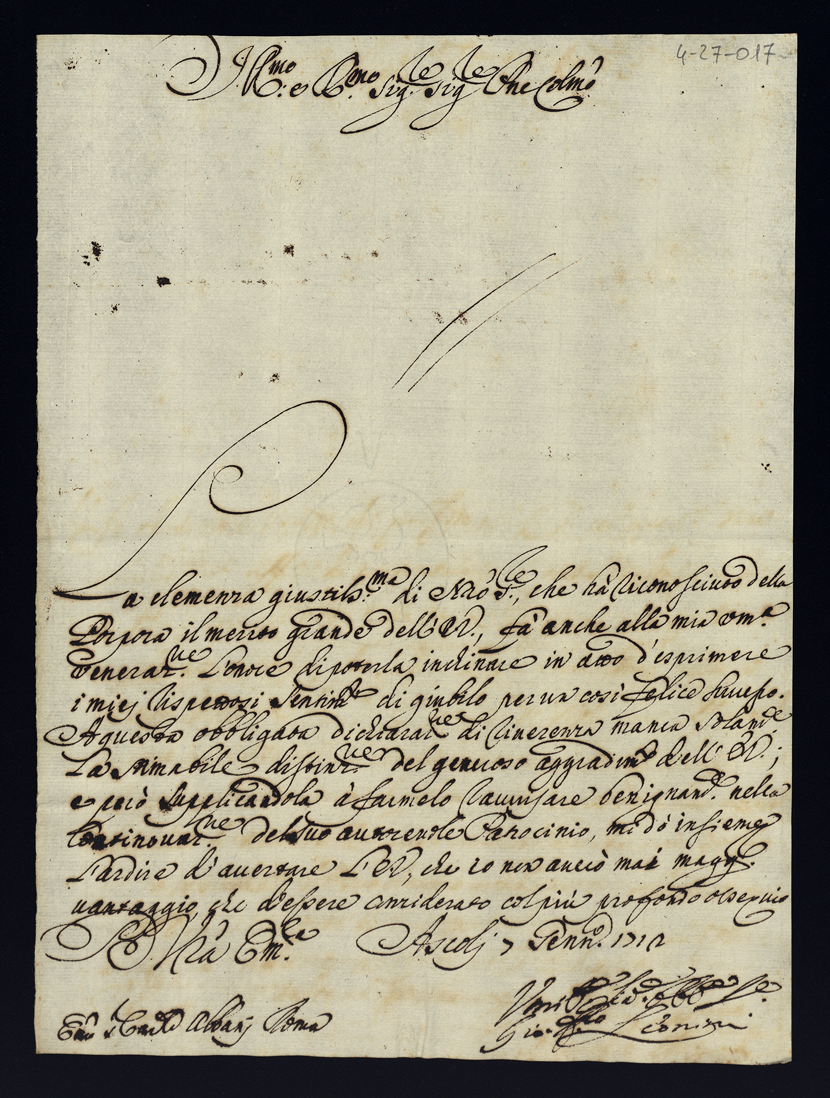 4-27-017
Ill.mo e R.mo Sig.re Sig.re P̃ne Colmõ
La clemenza giustiss.ma di N̄r̄o S.re, che hà riconosciuto della
Porpora il merito grande dell'E.V., fà anche alla mia um.a
Veneraz.ne l'onore di poterla inchinare in atto d'esprimere
i miej rispettosi sentim.ti di giubilo per un così felice
A questa obbligata dichiaraz.ne di riverenza manca solam.te
la stimabile distinz.ne del generoso aggradim.to dell'E.V.;
e però supplicandola à farmelo ravvisare benignam.te nella
continovaz.ne del suo autorevole Patrocinio, mi dò insieme
l'ardire d'accertare l'E.V., che io non averò mai magg.r
vantaggio, che d'essere considerato col più profondo ossequio
D. V̄r̄a Em.za Ascoli 7 Genn.o 1712
Em̃o S. Card. Albani Roma